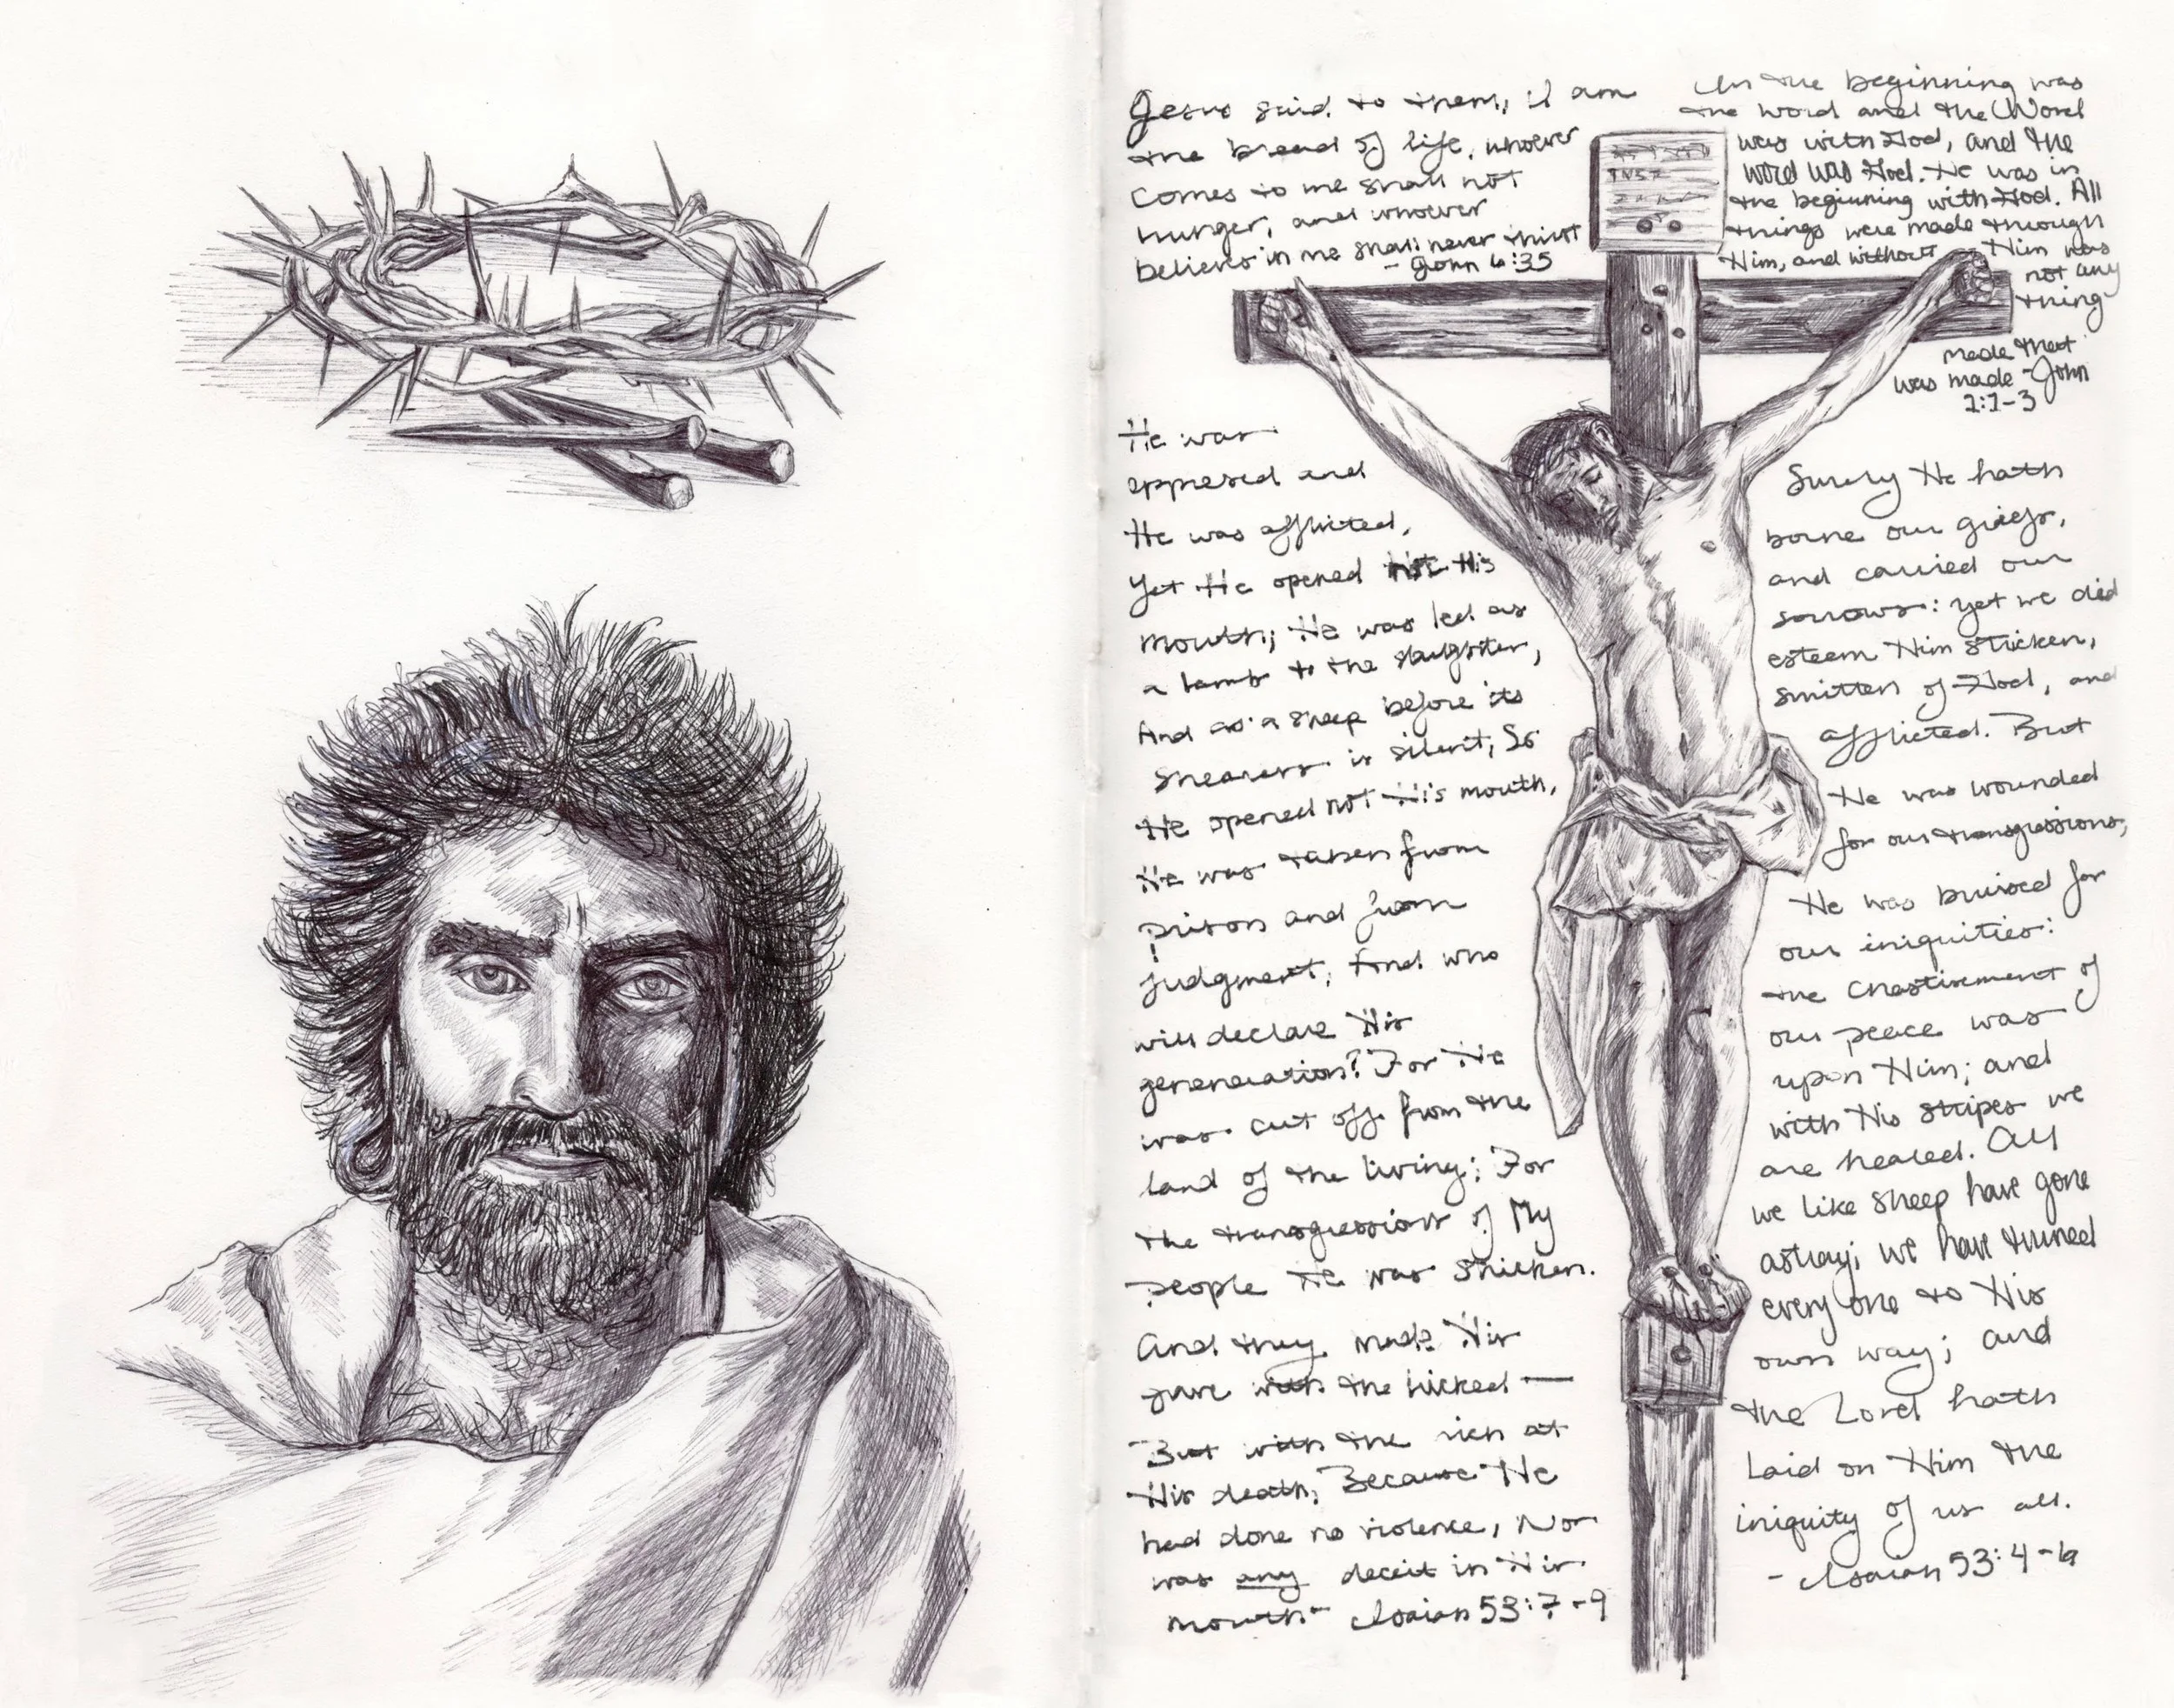 Jesus said to them, I am
the bread of life, whoever
comes to me shall not
hunger, and whoever
believes in me shall never thirst
- John 6:35
In the beginning was
the word and the Word
was with God, and the
word was God. He was in
the beginning with God. All
things were made through
Him, and without Him was
not any
thing
made that
was made - John
1:1-3
He was
oppresed and
He was afflicted,
Yet He opened not His
mouth; He was led as
a lamb to the slaughter,
And as a sheep before its
shearers is silent, So
He opened not His mouth,
He was taken from
prison and from
judgment, And who
will declare His
genereration? For He
was cut off from the
land of the living; For
the transgressions of My
people He was stricken.
And they made His
grave with the wicked —
But with the rich at
His death, Because He
had done no violence, Nor
was any deceit in His
mouth - Isaiah 53:7-9
Surely He hath
borne our griefs,
and carried our
sorrows: yet we did
esteem Him stricken,
smitten of God, and
afflicted. But
He was wounded
for our transgressions,
He was bruised for
our iniquities:
the chastisement of
our peace was
upon Him; and
with His stripes we
are healed. All
we like sheep have gone
astray; we have turned
every one to His
own way; and
the Lord hath
laid on Him the
iniquity of us all.
- Isaiah 53:4-6